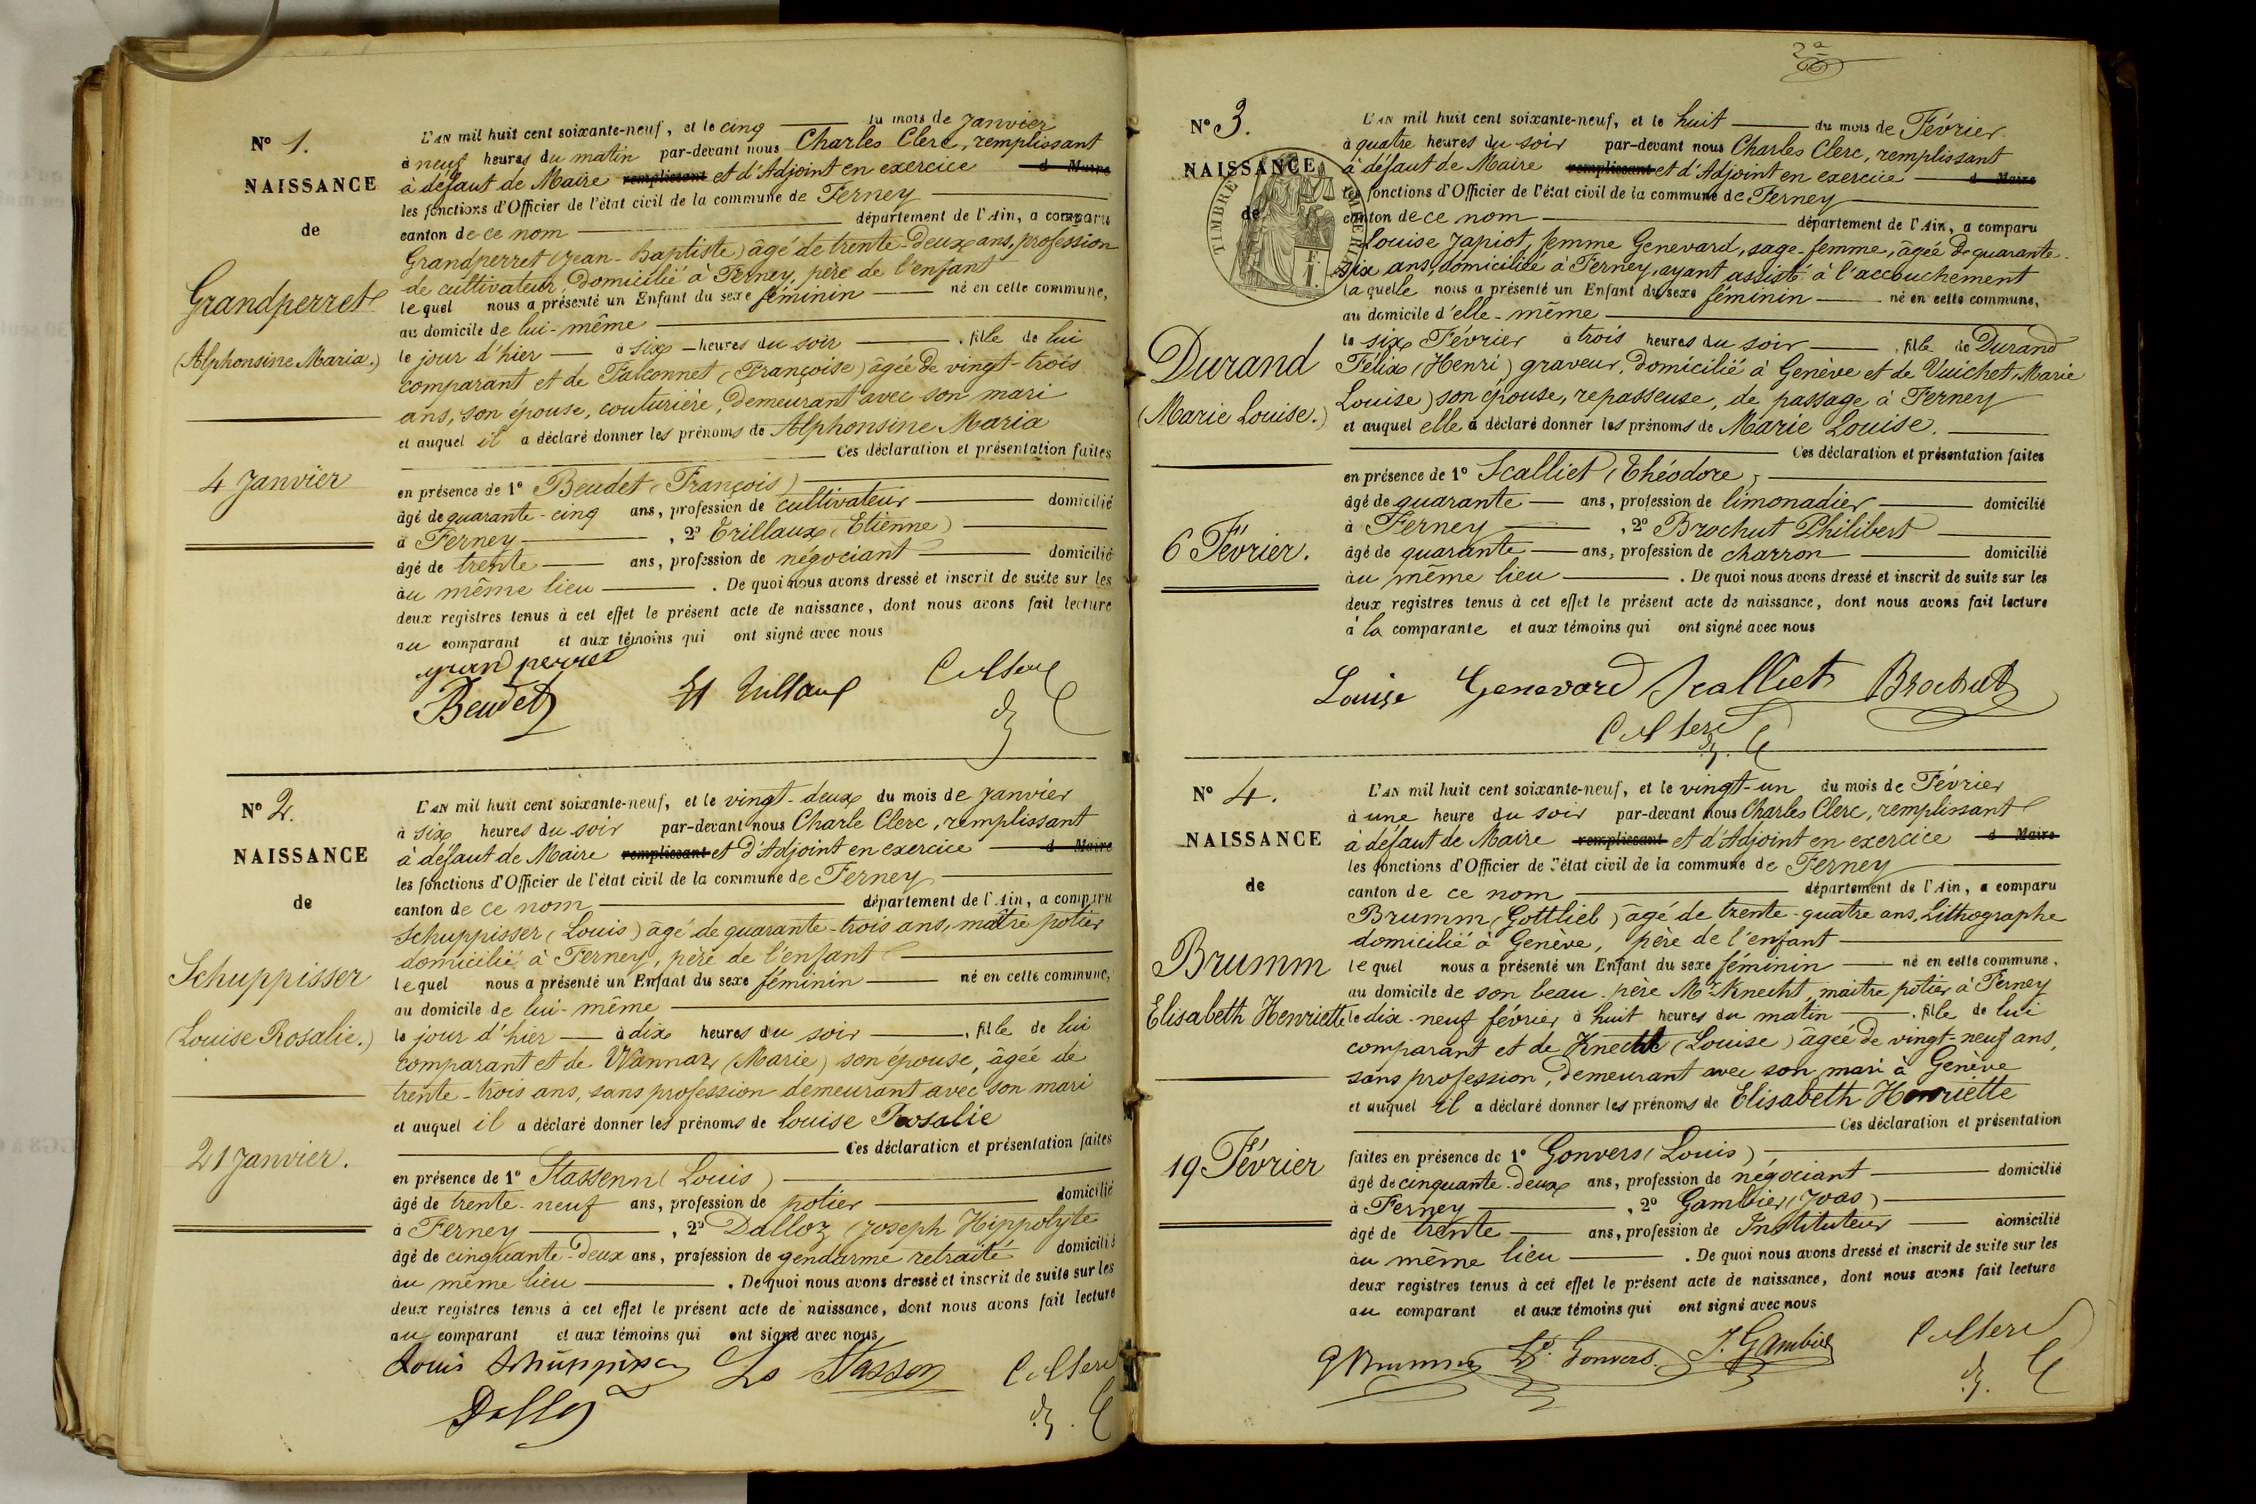 Nº 1.
NAISSANCE
de
Grandperret
(Alphonsine Maria.)
4 Janvier
L'AN mil huit cent soixante-neuf, et le cinq du mois de Janvier
à neuf heures du matin par-devant nous Charles Clerc, remplissant
à défaut de Maire remplissant et d'Adjoint en exercice d Maire
les fonctions d'Officier de l'état civil de la commune de Ferney
canton de ce nom département de l'Ain, a comparu
Grandperret (Jean-Baptiste) âgé de trente-deux ans, profession
de cultivateur, domicilié à Ferney, père de l'enfant
lequel nous a présenté un Enfant du sexe féminin né en cette commune,
au domicile de lui-même
le jour d'hier à six heures du soir , fille de lui
comparant et de Falconnet (Françoise) âgée de vingt-trois
ans, son épouse, couturière, demeurant avec son mari
et auquel il a déclaré donner les prénoms de Alphonsine Maria
Ces déclaration et présentation faites
en présence de 1º Beudet (François)
âgé de quarante-cinq ans, profession de cultivateur domicilié
à Ferney , 2º Trillaux (Etienne)
âgé de trente ans, profession de négociant domicilié
au même lieu . De quoi nous avons dressé et inscrit de suite sur les
deux registres tenus à cet effet le présent acte de naissance, dont nous avons fait lecture
au comparant et aux témoins qui ont signé avec nous
grand perret
Beudet
Nº 2.
NAISSANCE
de
Schuppisser
(Louise Rosalie.)
21 Janvier.
L'AN mil huit cent soixante-neuf, et le vingt-deux du mois de Janvier
à six heures du soir par-devant nous Charle Clerc, remplissant
à défaut de Maire remplissant et d'Adjoint en exercice d Maire
les fonctions d'Officier de l'état civil de la commune de Ferney
canton de ce nom département de l'Ain, a comparu
Schuppisser (Louis) âgé de quarante-trois ans, maître potier
domicilié à Ferney, père de l'enfant
lequel nous a présenté un Enfant du sexe féminin né en cette commune,
au domicile de lui-même
le jour d'hier à dix heures du soir , fille de lui
comparant et de Wannaz (Marie) son épouse, âgée de
trente-trois ans, sans profession demeurant avec son mari
et auquel il a déclaré donner les prénoms de Louise Rosalie
Ces déclaration et présentation faites
en présence de 1º Stassenn (Louis)
âgé de trente-neuf ans, profession de potier domicilié
à Ferney , 2º Dalloz (Joseph Hippolyte
âgé de cinquante-deux ans, profession de gendarme retraité domicilié
au même lieu . De quoi nous avons dressé et inscrit de suite sur les
deux registres tenus à cet effet le présent acte de naissance, dont nous avons fait lecture
au comparant et aux témoins qui ont signé avec nous
Louis Schuppisser Ls Stassen
Dalloz
2ª
Nº 3.
NAISSANCE
de
TIMBRE
Durand
(Marie Louise.)
6 Février.
L'AN mil huit cent soixante-neuf, et le huit du mois de Février
à quatre heures du soir par-devant nous Charles Clerc, remplissant
à défaut de Maire remplissant et d'Adjoint en exercice d Maire
les fonctions d'Officier de l'état civil de la commune de Ferney
canton de ce nom département de l'Ain, a comparu
Louise Japiot, femme Genevard, sage-femme, âgée de quarante-
six ans, domiciliée à Ferney, ayant assisté à l'accouchement
laquelle nous a présenté un Enfant du sexe féminin né en cette commune,
au domicile d'elle-même
le six Février à trois heures du soir , fille de Durand
Félix (Henri) graveur, domicilié à Genève et de Vuichet, Marie
Louise) son épouse, repasseuse, de passage à Ferney
et auquel elle a déclaré donner les prénoms de Marie Louise.
Ces déclaration et présentation faites
en présence de 1º Scalliet (Théodore)
âgé de quarante ans, profession de limonadier domicilié
à Ferney , 2º Brochut Philibert
âgé de quarante ans, profession de charron domicilié
au même lieu . De quoi nous avons dressé et inscrit de suite sur les
deux registres tenus à cet effet le présent acte de naissance, dont nous avons fait lecture
à la comparante et aux témoins qui ont signé avec nous
Louise Genevard Scalliet Brochut
Nº 4.
NAISSANCE
de
Brumm
Elisabeth Henriette
19 Février
L'AN mil huit cent soixante-neuf, et le vingt-un du mois de Février
à une heure du soir par-devant nous Charles Clerc, remplissant
à défaut de Maire remplissant et d'Adjoint en exercice d Maire
les fonctions d'Officier de l'état civil de la commune de Ferney
canton de ce nom département de l'Ain, a comparu
Brumm (Gottlieb) âgé de trente-quatre ans, Lithographe
domicilié à Genève, père de l'enfant
lequel nous a présenté un Enfant du sexe féminin né en cette commune,
au domicile de son beau-père Mr Knecht, maître potier à Ferney
le dix-neuf février à huit heures du matin , fille de lui
comparant et de Knecht (Louise) âgée de vingt-neuf ans,
sans profession, demeurant avec son mari à Genève
et auquel il a déclaré donner les prénoms de Elisabeth Henriette
Ces déclaration et présentation
faites en présence de 1º Gonvers (Louis)
âgé de cinquante-deux ans, profession de négociant domicilié
à Ferney , 2º Gambier (Joas)
âgé de trente ans, profession de Instituteur domicilié
au même lieu . De quoi nous avons dressé et inscrit de suite sur les
deux registres tenus à cet effet le présent acte de naissance, dont nous avons fait lecture
au comparant et aux témoins qui ont signé avec nous
G Brumm Ls. Gonvers. J. Gambier